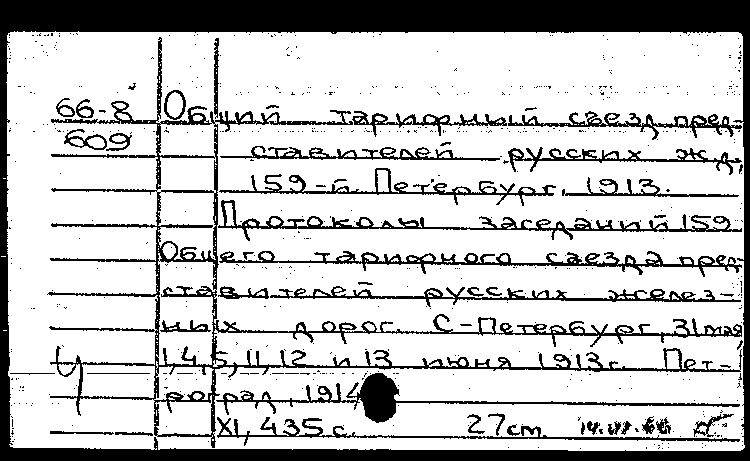 66-8 Общий тарифный съезд пред-
609 ставителей русских ж.д.,
159-й. Петербург, 1913.
Протоколы заседаний 159
Общего тарифного съезда пред-
ставителей русских желез-
ных дорог. С-Петербург, 31 мая
1, 4, 5, 11, 12 и 13 июня 1913 г. Пет-
роград, 1914
XI, 435 с. 27 cm.